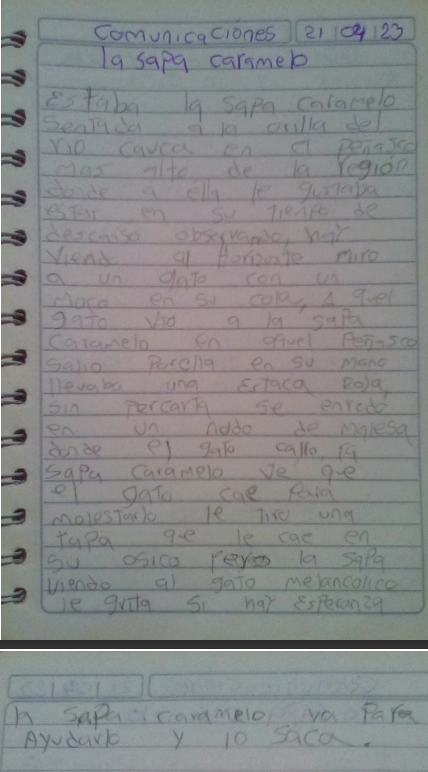 Comunicaciones 21 04 23
la sapa caramelo
Estaba la sapa caramelo
Sentada a la orilla del
rio cauca en el peñasco
mas alto de la región
donde a ella le gustaba
estar en su tiempo de
descanso observando, hay
Viendo al Horizonte miro
a un gato con un
moco en su cola, A quel
gato vio a la sapa
Caramelo en aquel Peñasco
Salio Porella en su mano
llevaba una Estaca Roja,
Sin percarta se enredo
en un nodo de malesa
donde el gato callo, la
Sapa Caramelo ve que
el gato cae para
molestarlo le tiro una
tapa que le cae en
su osico pero la sapa
viendo al gato melancolico
le grita Si hay Esperanza
la Sapa caramelo, va para
Ayudarlo y lo Saca.